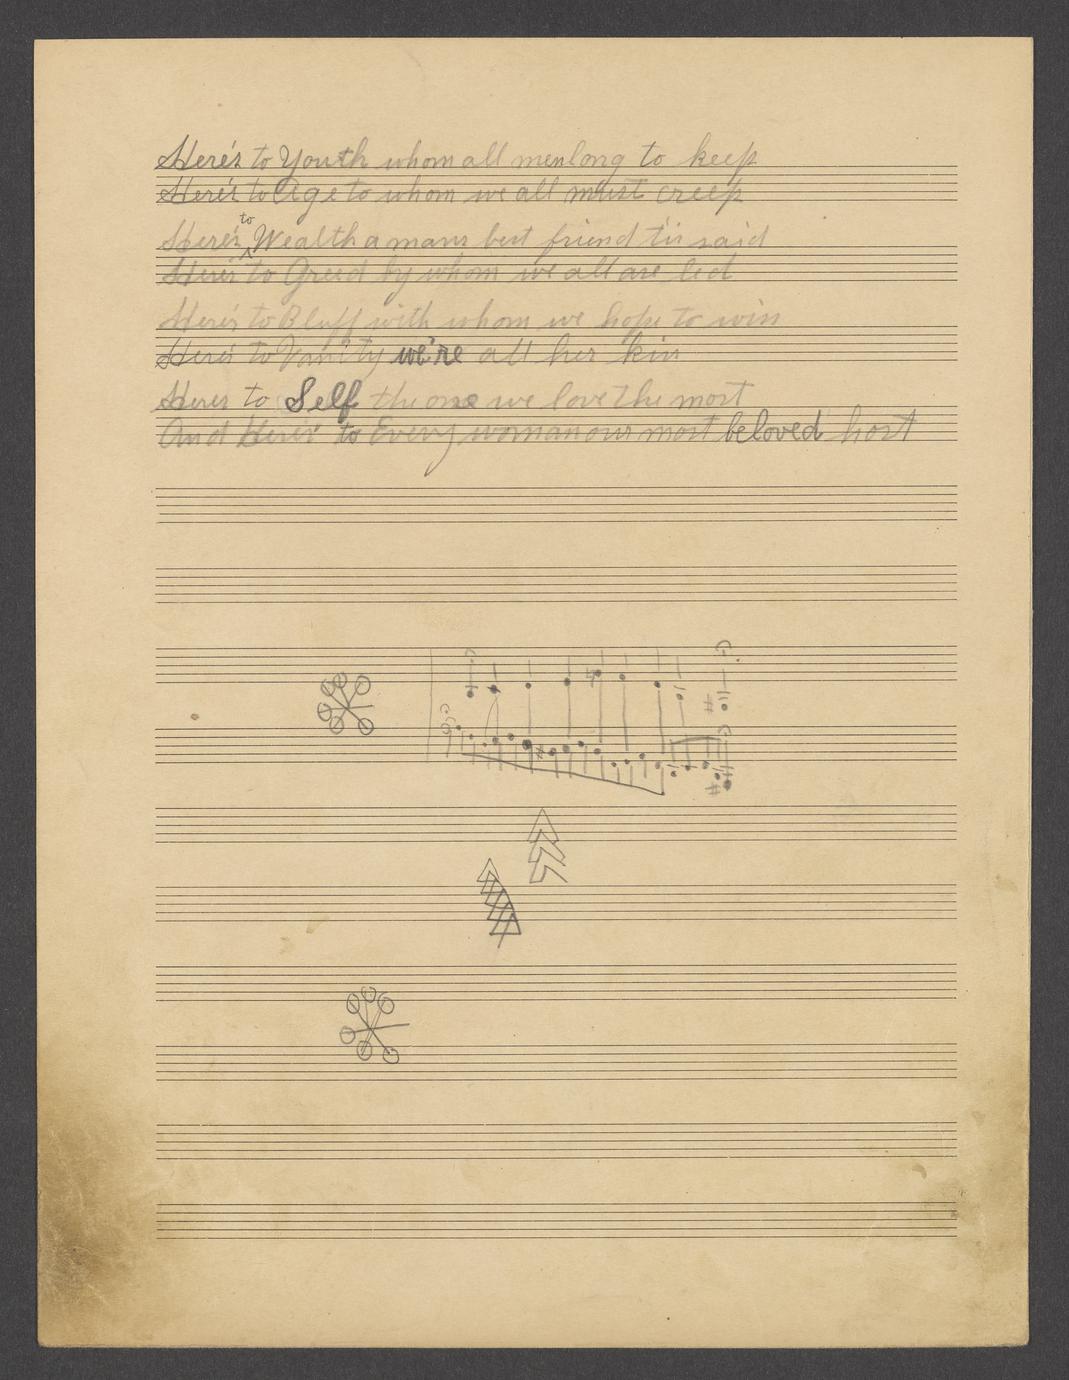 Here's to Youth whom all men long to keep
Here's to Age to whom we all must creep
Here's to Wealth a mans best friend tis said
Here's to Greed by whom we all are led
Here's to Bluff with whom we hope to win
Here's to Vanity we're all her kin
Heres to Self the one we love the most
And Here's to Every woman our most beloved host